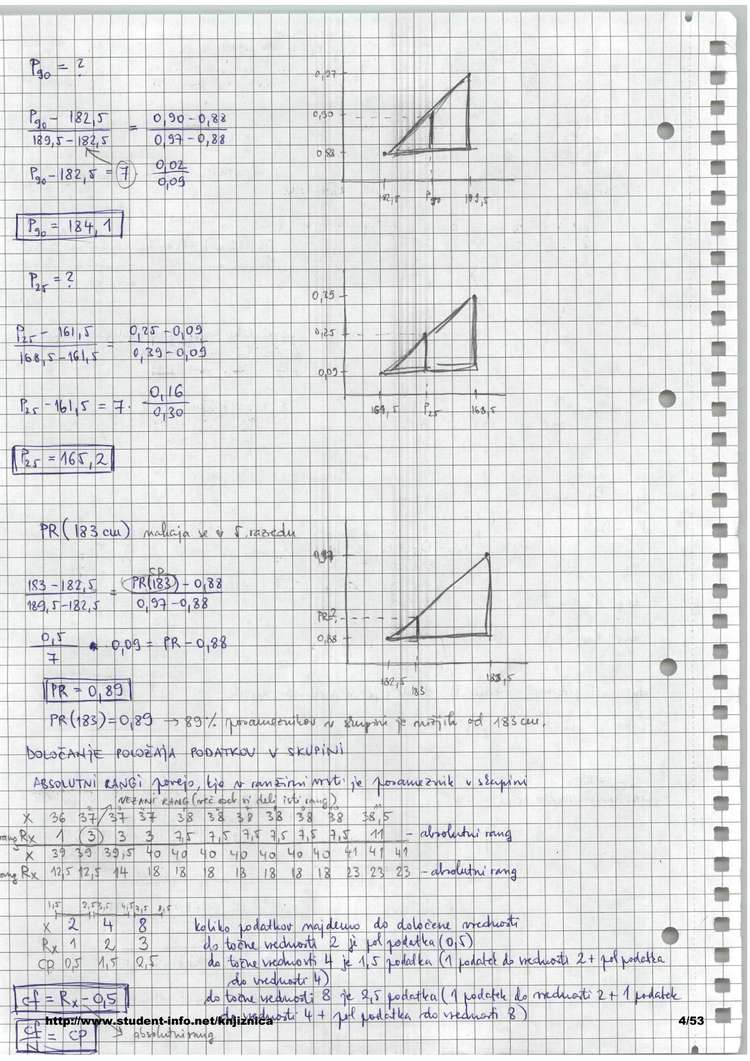 P90 = ?
P90 - 182,5 / 189,5 - 182,5 = 0,90 - 0,88 / 0,97 - 0,88
P90 - 182,5 = 7 0,02 / 0,09
P90 = 184,1
0,97
0,90
0,88
182,5 P90 189,5
P25 = ?
P25 - 161,5 / 168,5 - 161,5 = 0,25 - 0,09 / 0,39 - 0,09
P25 - 161,5 = 7 · 0,16 / 0,30
P25 = 165,2
0,25
0,09
P25 168,5
PR(183 cm) nahaja se v 5. razredu
CP
183 - 182,5 / 189,5 - 182,5 = PR(183) - 0,88 / 0,97 - 0,88
0,5 / 7 · 0,09 = PR - 0,88
PR = 0,89
0,97
PR=?
0,88
182,5 183
PR(183) = 0,89 → 89% posameznikov v skupini je nižjih od 183 cm.
DOLOČANJE POLOŽAJA PODATKOV V SKUPINI
ABSOLUTNI RANGI povejo, kje v ranžirni vrsti je posameznik v skupini
VEZANI RANG (več oseb si deli isti rang)
X 36 37 37 37 38 38 38 38 38 38 38,5
rang Rx 1 3 3 3 7,5 7,5 7,5 7,5 7,5 7,5 11 - absolutni rang
X 39 39 39,5 40 40 40 40 40 40 40 41 41 41
rang Rx 12,5 12,5 14 18 18 18 18 18 18 18 23 23 23 - absolutni rang
1,5 2,5 3,5 4,5 7,5 8,5
X 2 4 8 koliko podatkov najdemo do določene vrednosti
Rx 1 2 3 do točne vrednosti 2 je pol podatka (0,5)
CP 0,5 1,5 2,5 do točne vrednosti 4 je 1,5 podatka (1 podatek do vrednosti 2 + pol podatka
do vrednosti 4)
cf = Rx - 0,5 do točne vrednosti 8 je 2,5 podatka (1 podatek do vrednosti 2 + 1 podatek
do vrednosti 4 + pol podatka do vrednosti 8)
http://www.student-info.net/knjiznica 4/53
cf / N = CP → absolutni rang